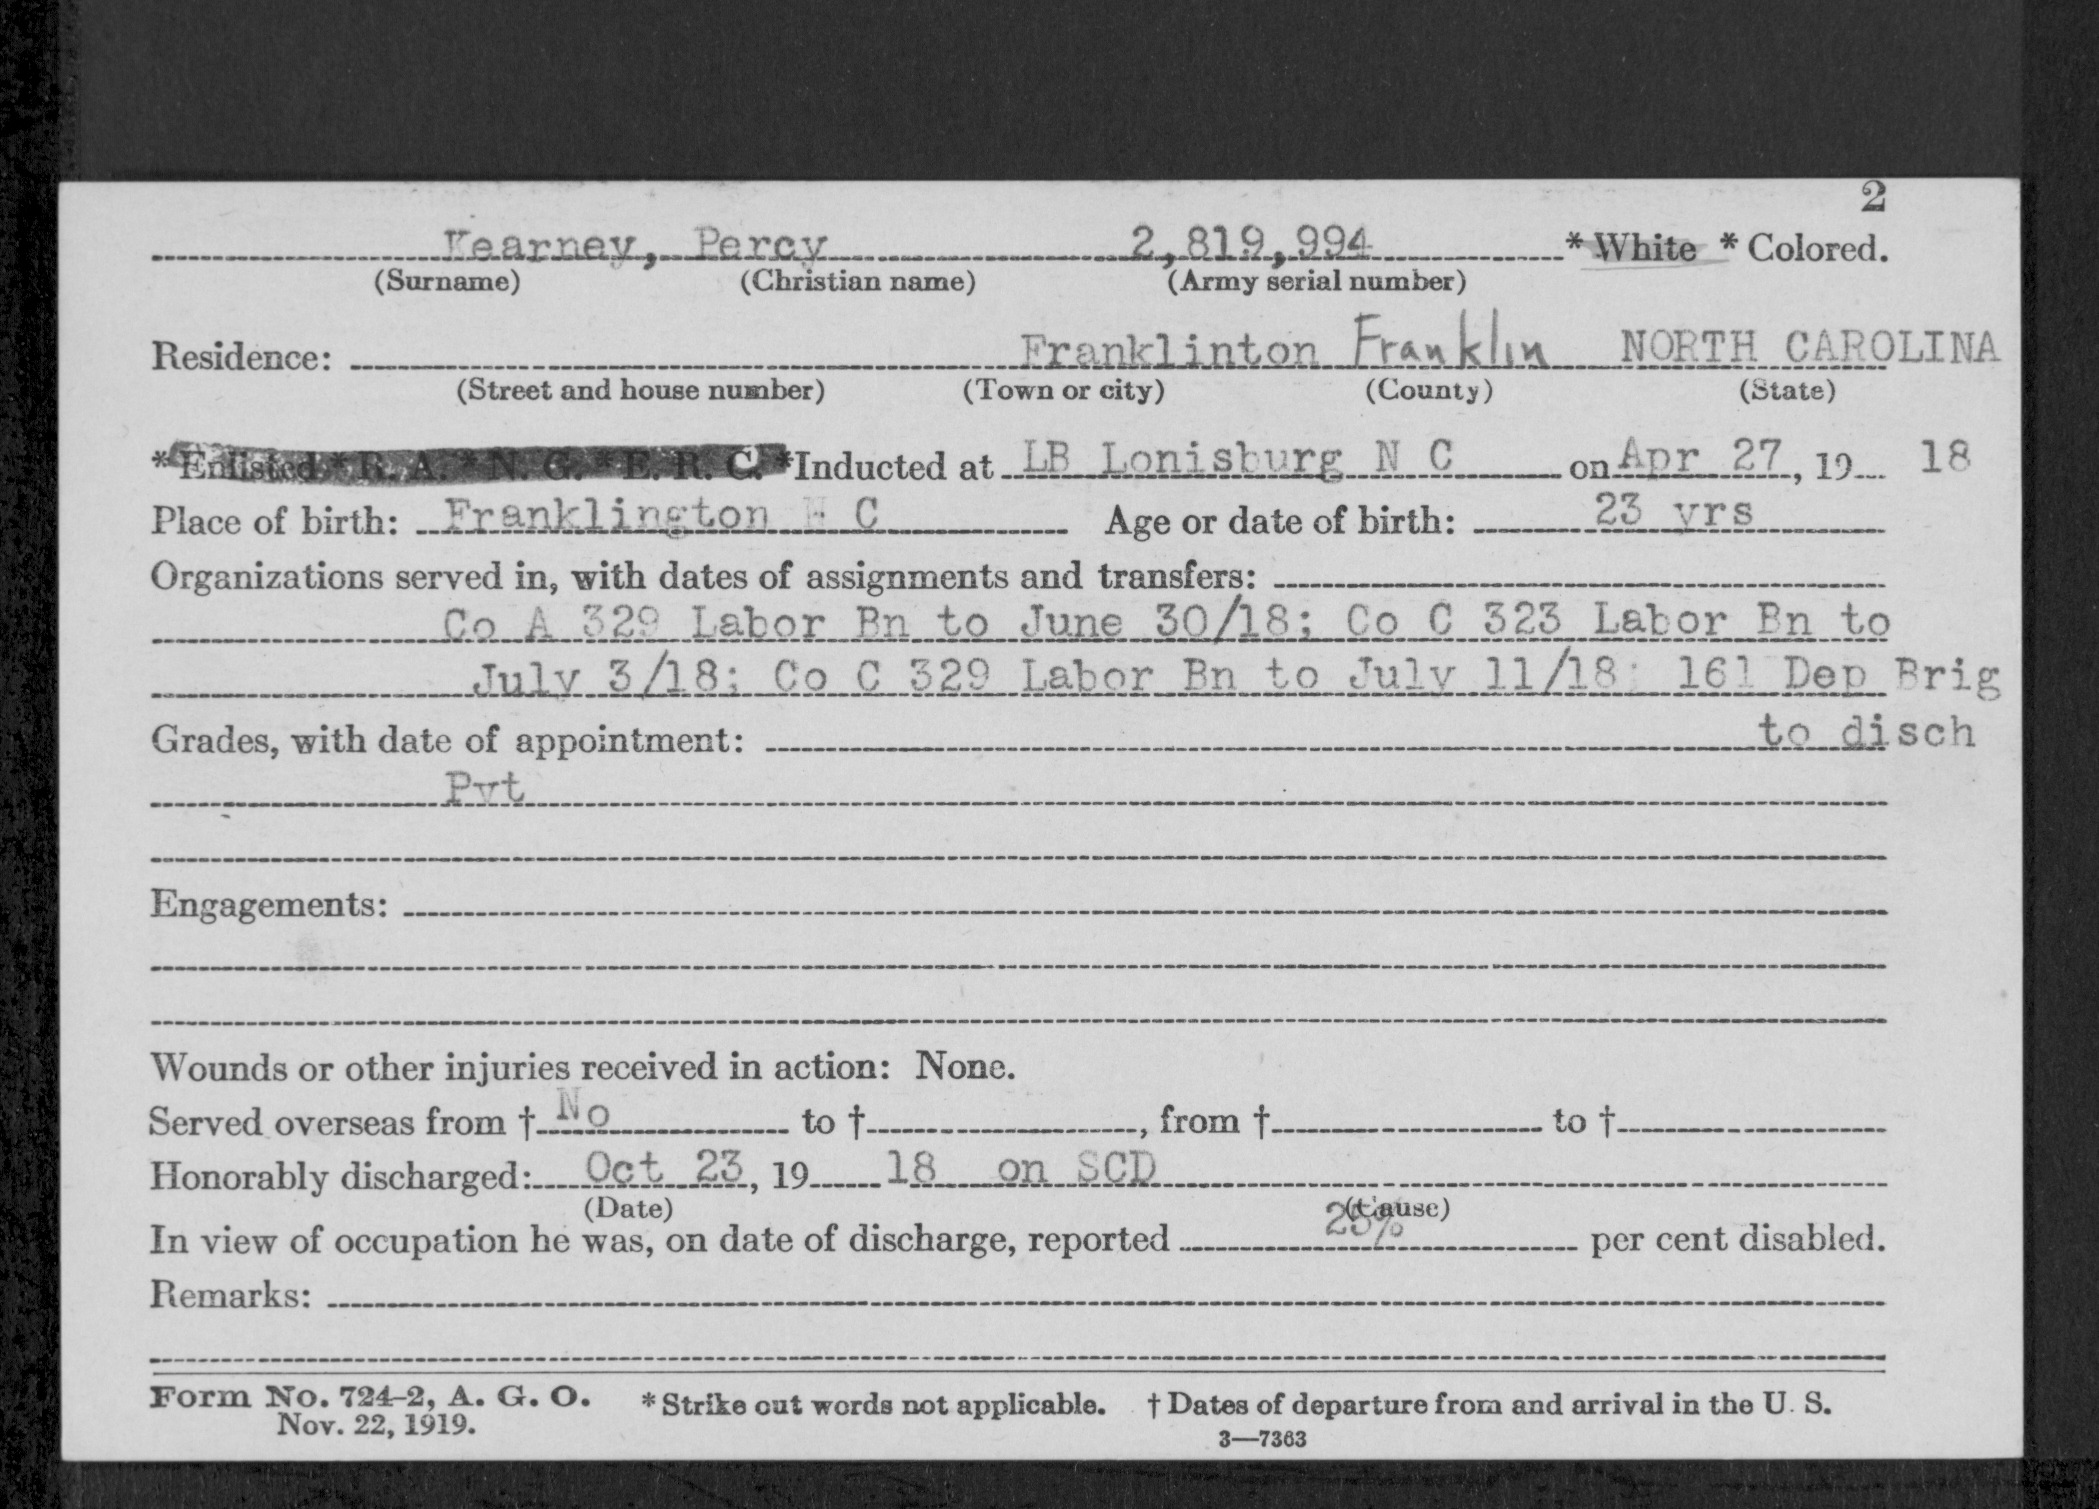 2
Kearney, Percy 2,819,994 * White * Colored.
(Surname) (Christian name) (Army serial number)
Residence: Franklinton Franklin NORTH CAROLINA
(Street and house number) (Town or city) (County) (State)
* Enlisted * R. A. * N. G. * E. R. C. * Inducted at LB Lonisburg N C on Apr 27, 19 18
Place of birth: Franklington N C Age or date of birth: 23 yrs
Organizations served in, with dates of assignments and transfers:
Co A 329 Labor Bn to June 30/18; Co C 323 Labor Bn to
July 3/18; Co C 329 Labor Bn to July 11/18; 161 Dep Brig
to disch
Grades, with date of appointment:
Pvt
Engagements:
Wounds or other injuries received in action: None.
Served overseas from † No to †, from † to †
Honorably discharged: Oct 23, 19 18 on SCD
(Date) (Cause)
In view of occupation he was, on date of discharge, reported 25% per cent disabled.
Remarks:
Form No. 724-2, A. G. O. * Strike out words not applicable. † Dates of departure from and arrival in the U. S.
Nov. 22, 1919. 3—7363